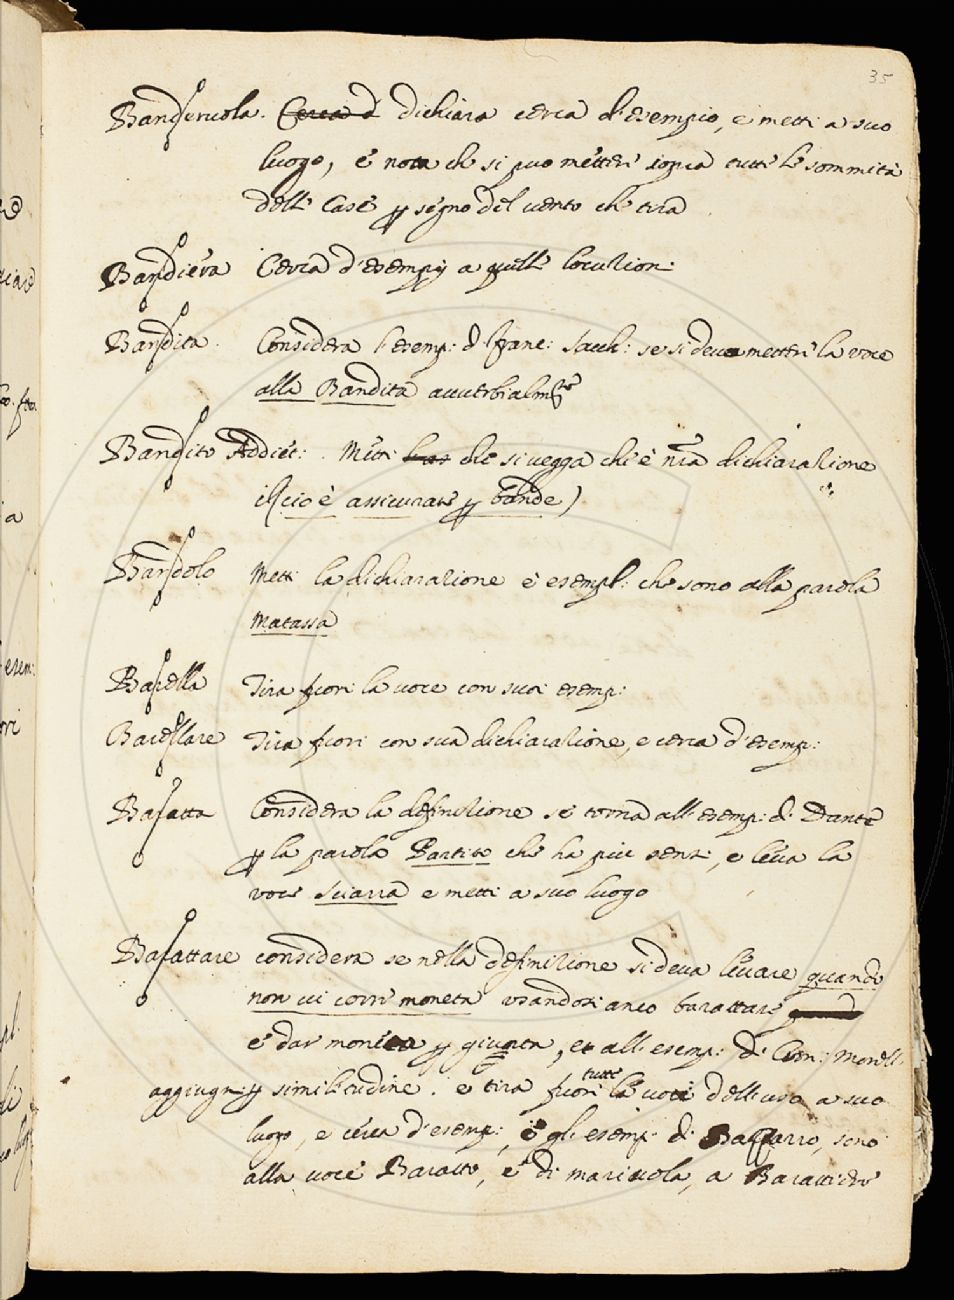 35
Banderuola. Cerca d dichiara cerca d'esempio, e metti a suo
luogo, e nota che si può metter sopra tutte le sommità
delle Case p segno del vento che tira
Bandiera Cerca d'esempij a quelle locuzioni
Bandita. Considera l'esemp: d Franc: Sacch: se si deva metter la voce
alla Bandita avverbialmte
Bandito Addiet: . Metti che si vegga che è nra dichiarazione
il (cioè assicurate p bande)
Bandolo Metti la dichiarazione e esempl: che sono alla parola
Matassa
Barella Tira fuori la voce con suoi esemp:
Barellare Tira fuori con sua dichiarazione, e cerca d'esemp:
Baratta Considera la definizione se torna all'esemp: di Dante
p la parola Partito che ha piu sensi, e leva la
voce Sciarra e metti a suo luogo
Barattare considera se nella definizione si deva levare quando
non vi corre moneta usandosi anco barattare
e dar moneta p giunta, et all'esemp: di Cron: Morell:
aggiugni p similitudine. e tira fuori tutte le voci dell'uso a suo
luogo, e cerca d'esemp:, e gl'esemp: di Bazzarro, sono
alla voce Baratto, e di mariuola, a Barattiere